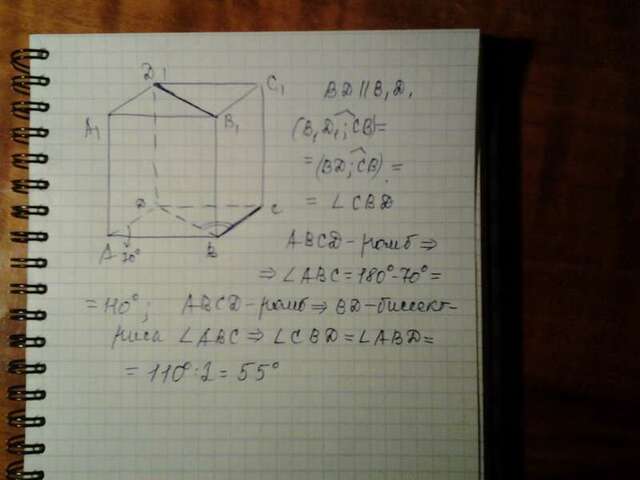 D1
C1
A1
B1
D
C
A
70°
B
BD || B1D1
(B1D1; CB) =
= (BD; CB) =
= ∠CBD
ABCD - ромб ⇒
⇒ ∠ABC = 180° - 70° =
= 110°; ABCD - ромб ⇒ BD - биссект-
риса ∠ABC ⇒ ∠CBD = ∠ABD =
= 110° : 2 = 55°